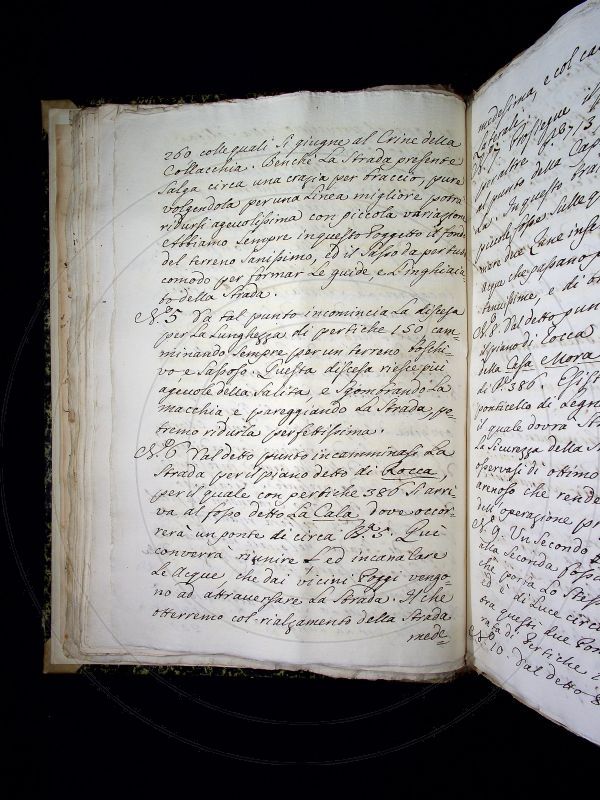 260 colle quali si giugne al Crine della
Collacchia. Benchè La Strada presente
Salga circa una crazia per braccio, pure
volgendola per una Linea migliore potrà
ridursi agevolissima con piccola variazione
Abbiamo sempre in questo Poggetto il fondo
del terreno sanissimo, ed il Sasso da per tutto
comodo per formar Le guide, e L'inghiaia-
to della Strada.
N.º 5 Da tal punto incomincia La discesa
per La Lunghezza di pertiche 150 cam-
minando sempre per un terreno boschi-
vo e sassoso. Questa discesa riesce più
agevole della Salita, e sgombrando La
macchia e pareggiando La Strada, po-
tremo ridurla perfettissima.
N.º 6 Dal detto punto incamminasi La
Strada per il piano detto di Rocca,
per il quale con pertiche 386 si arri-
va al fosso detto La Cala dove occor-
rerà un ponte di circa B.ª 5. Qui
converrà riunire ed incanalare
Le Acque che dai vicini Poggi vengo-
no ad attraversare La Strada. Il che
otterremo col rialzamento della Strada
mede-
medesima, e col ca
Laterali
N. 7. Prosiegue il
per altre 267/3
al punto della Cap
la. In questo tra
piccole fosse sulle q
mere due Lune infe
acqua che passano p
tenuissime, e di
N. 8. Dal detto pun
il piano di Rocca
della Casa Mora
di P. 386. Esist
ponticello di Legn
il quale dovrà st
La sicurezza della
osservasi di ottimo
arenoso che rende
operazione pi
N. 9. Un Secondo
alla Seconda foss
che porta Lo stess
e di Luce circ
tra questi due Pon
di Pertiche
N. 10. Dal detto